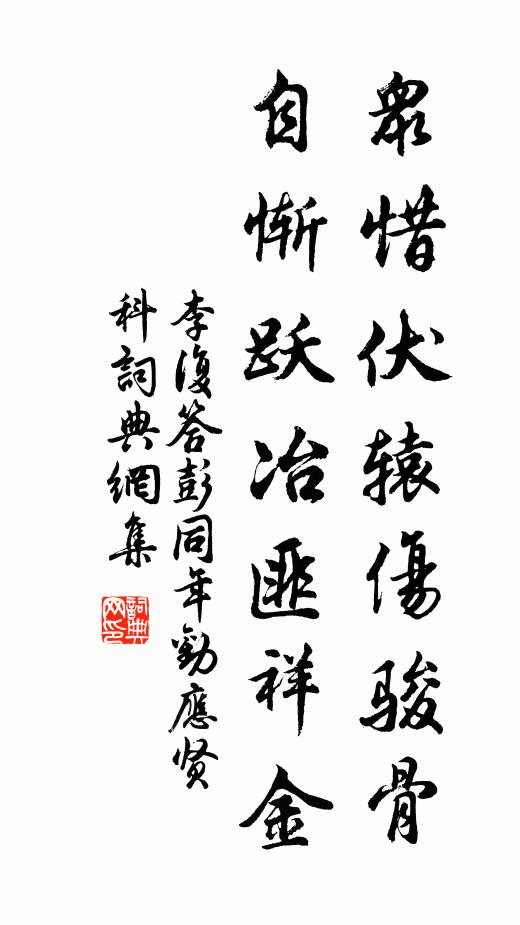 眾惜伏辕傷骏骨
自惭跃冶匪祥金
李復答彭同年勸應贤
科詞典網集
詞典网印